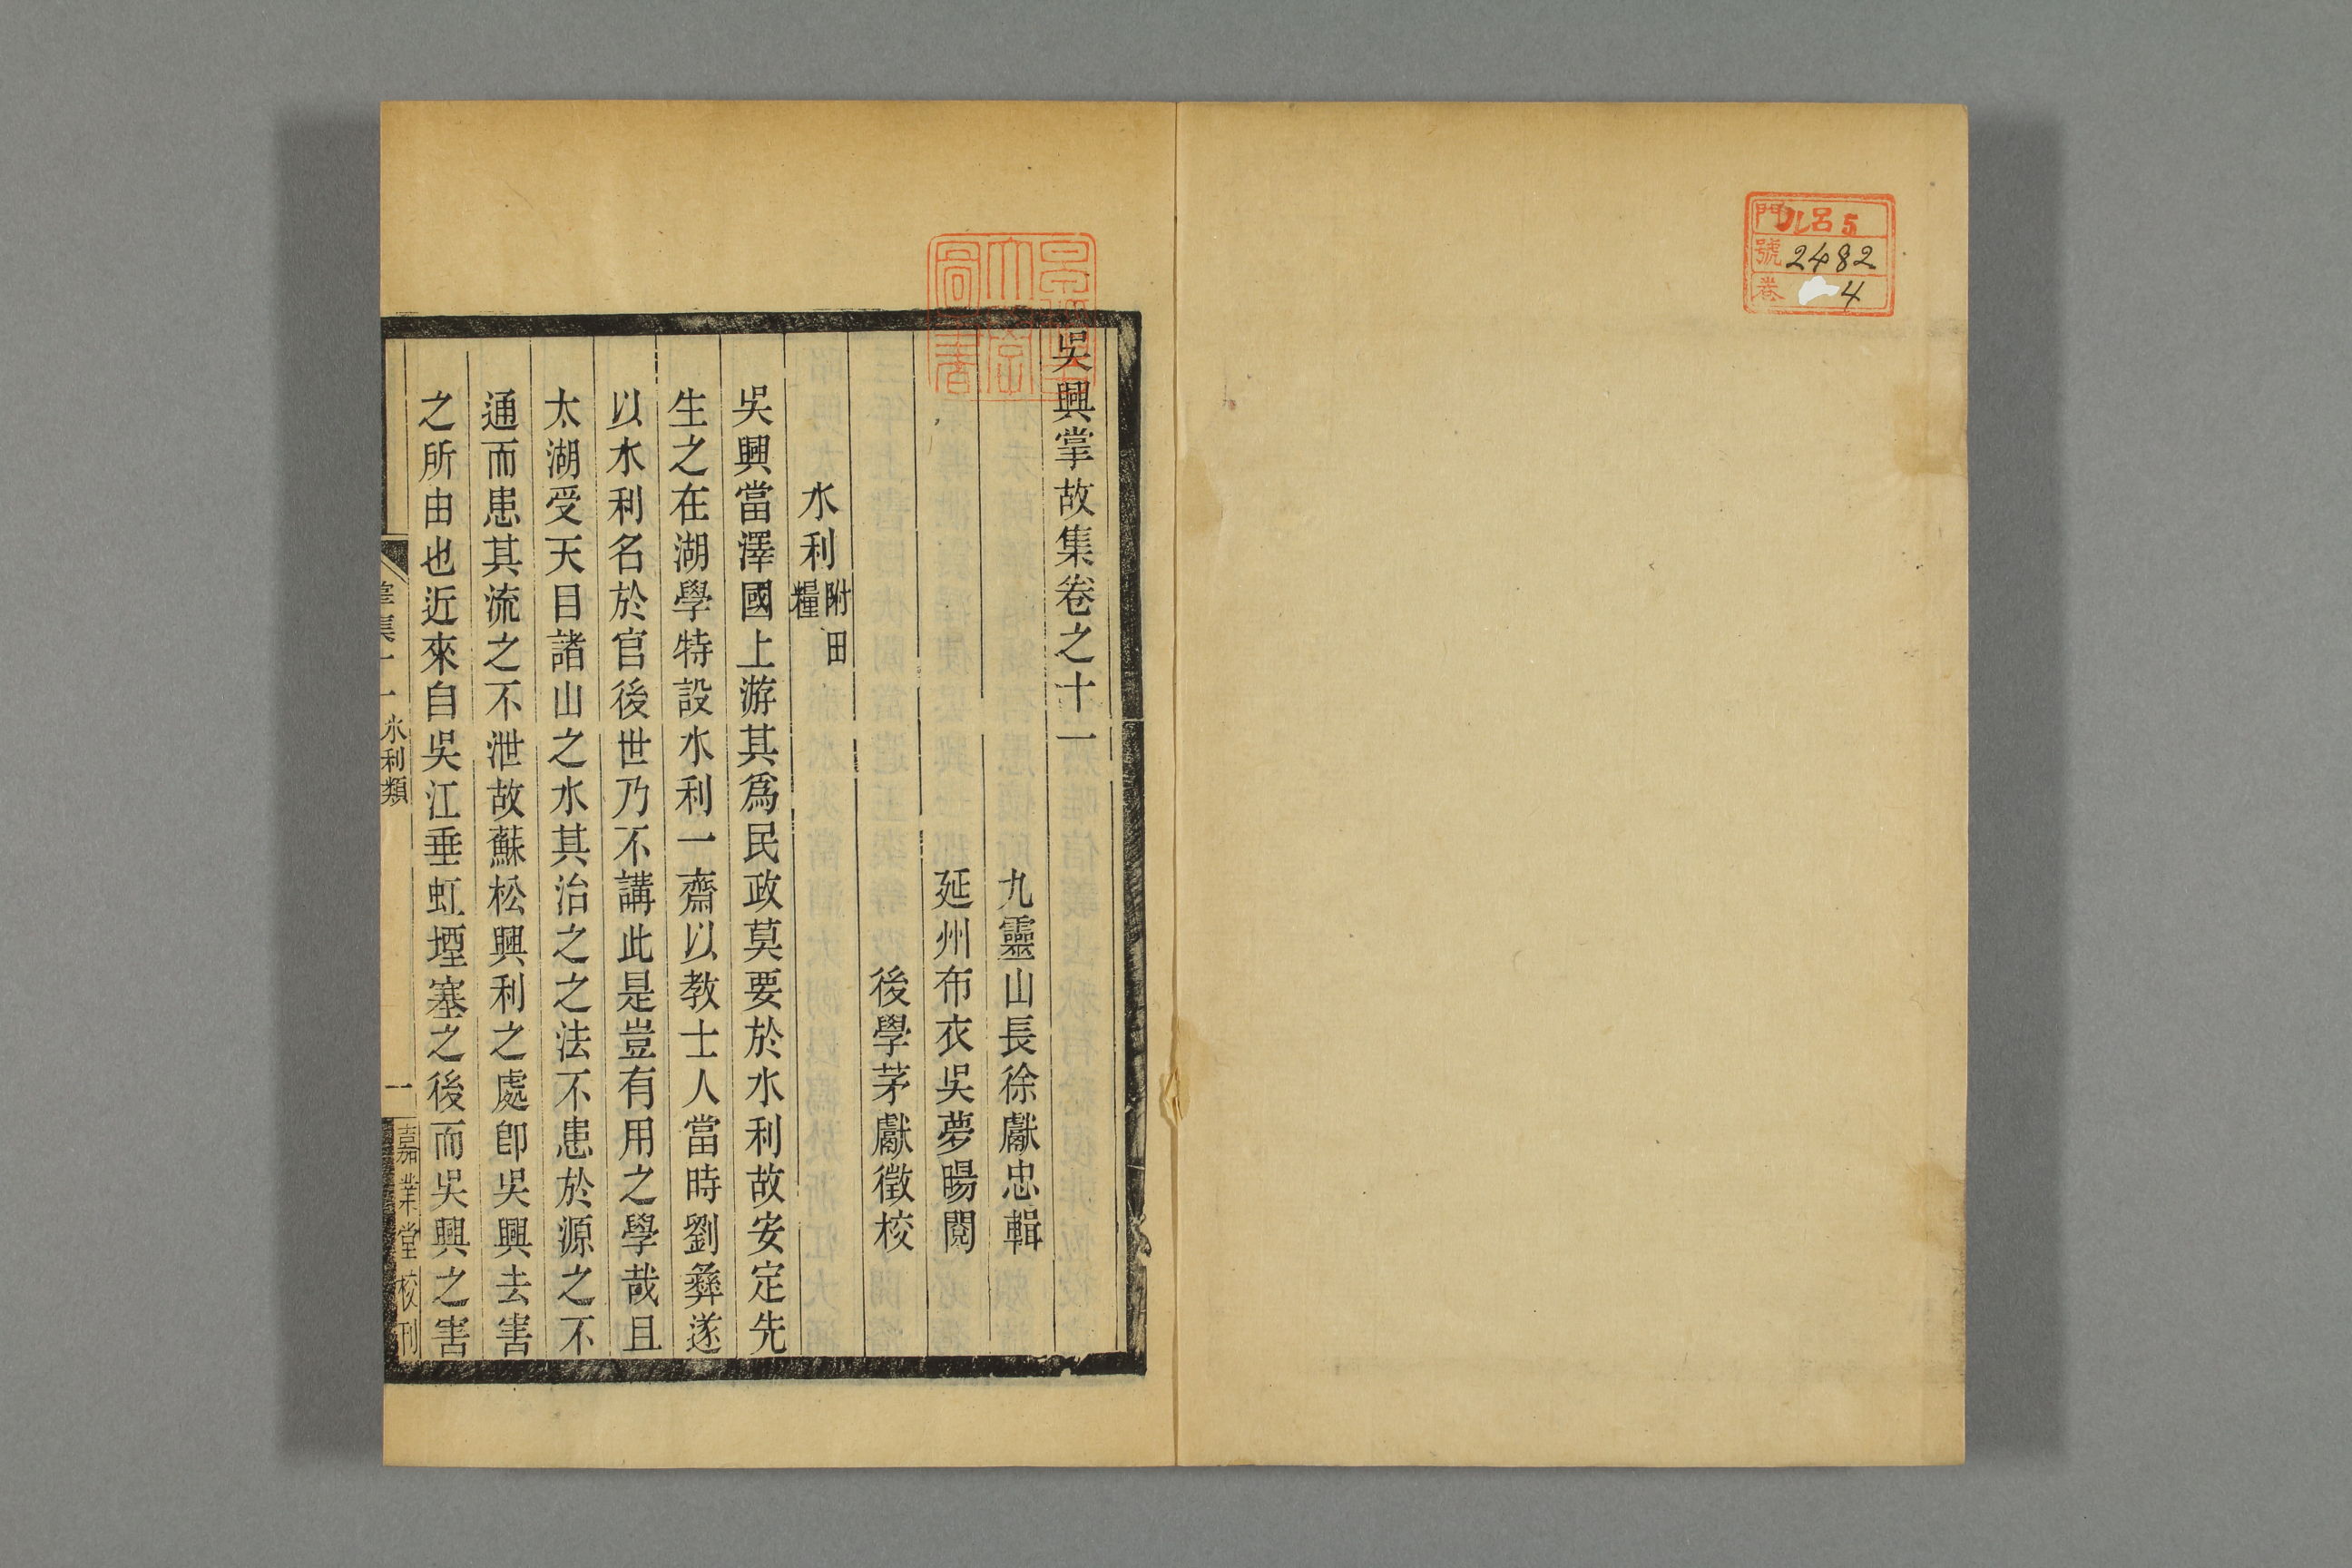 門 ル呂5
號 2482
卷 4
吳興掌故集卷之十一
九靈山長徐獻忠輯
延州布衣吳夢暘閱
後學茅獻徵校
水利附田糧
吳興當澤國上游其爲民政莫要於水利故安定先
生之在湖學特設水利一齋以教士人當時劉彝遂
以水利名於官後世乃不講此是豈有用之學哉且
太湖受天目諸山之水其治之之法不患於源之不
通而患其流之不泄故蘇松興利之處卽吳興去害
之所由也近來自吳江垂虹堙塞之後而吳興之害
掌集十一 水利類 一 嘉業堂校刊